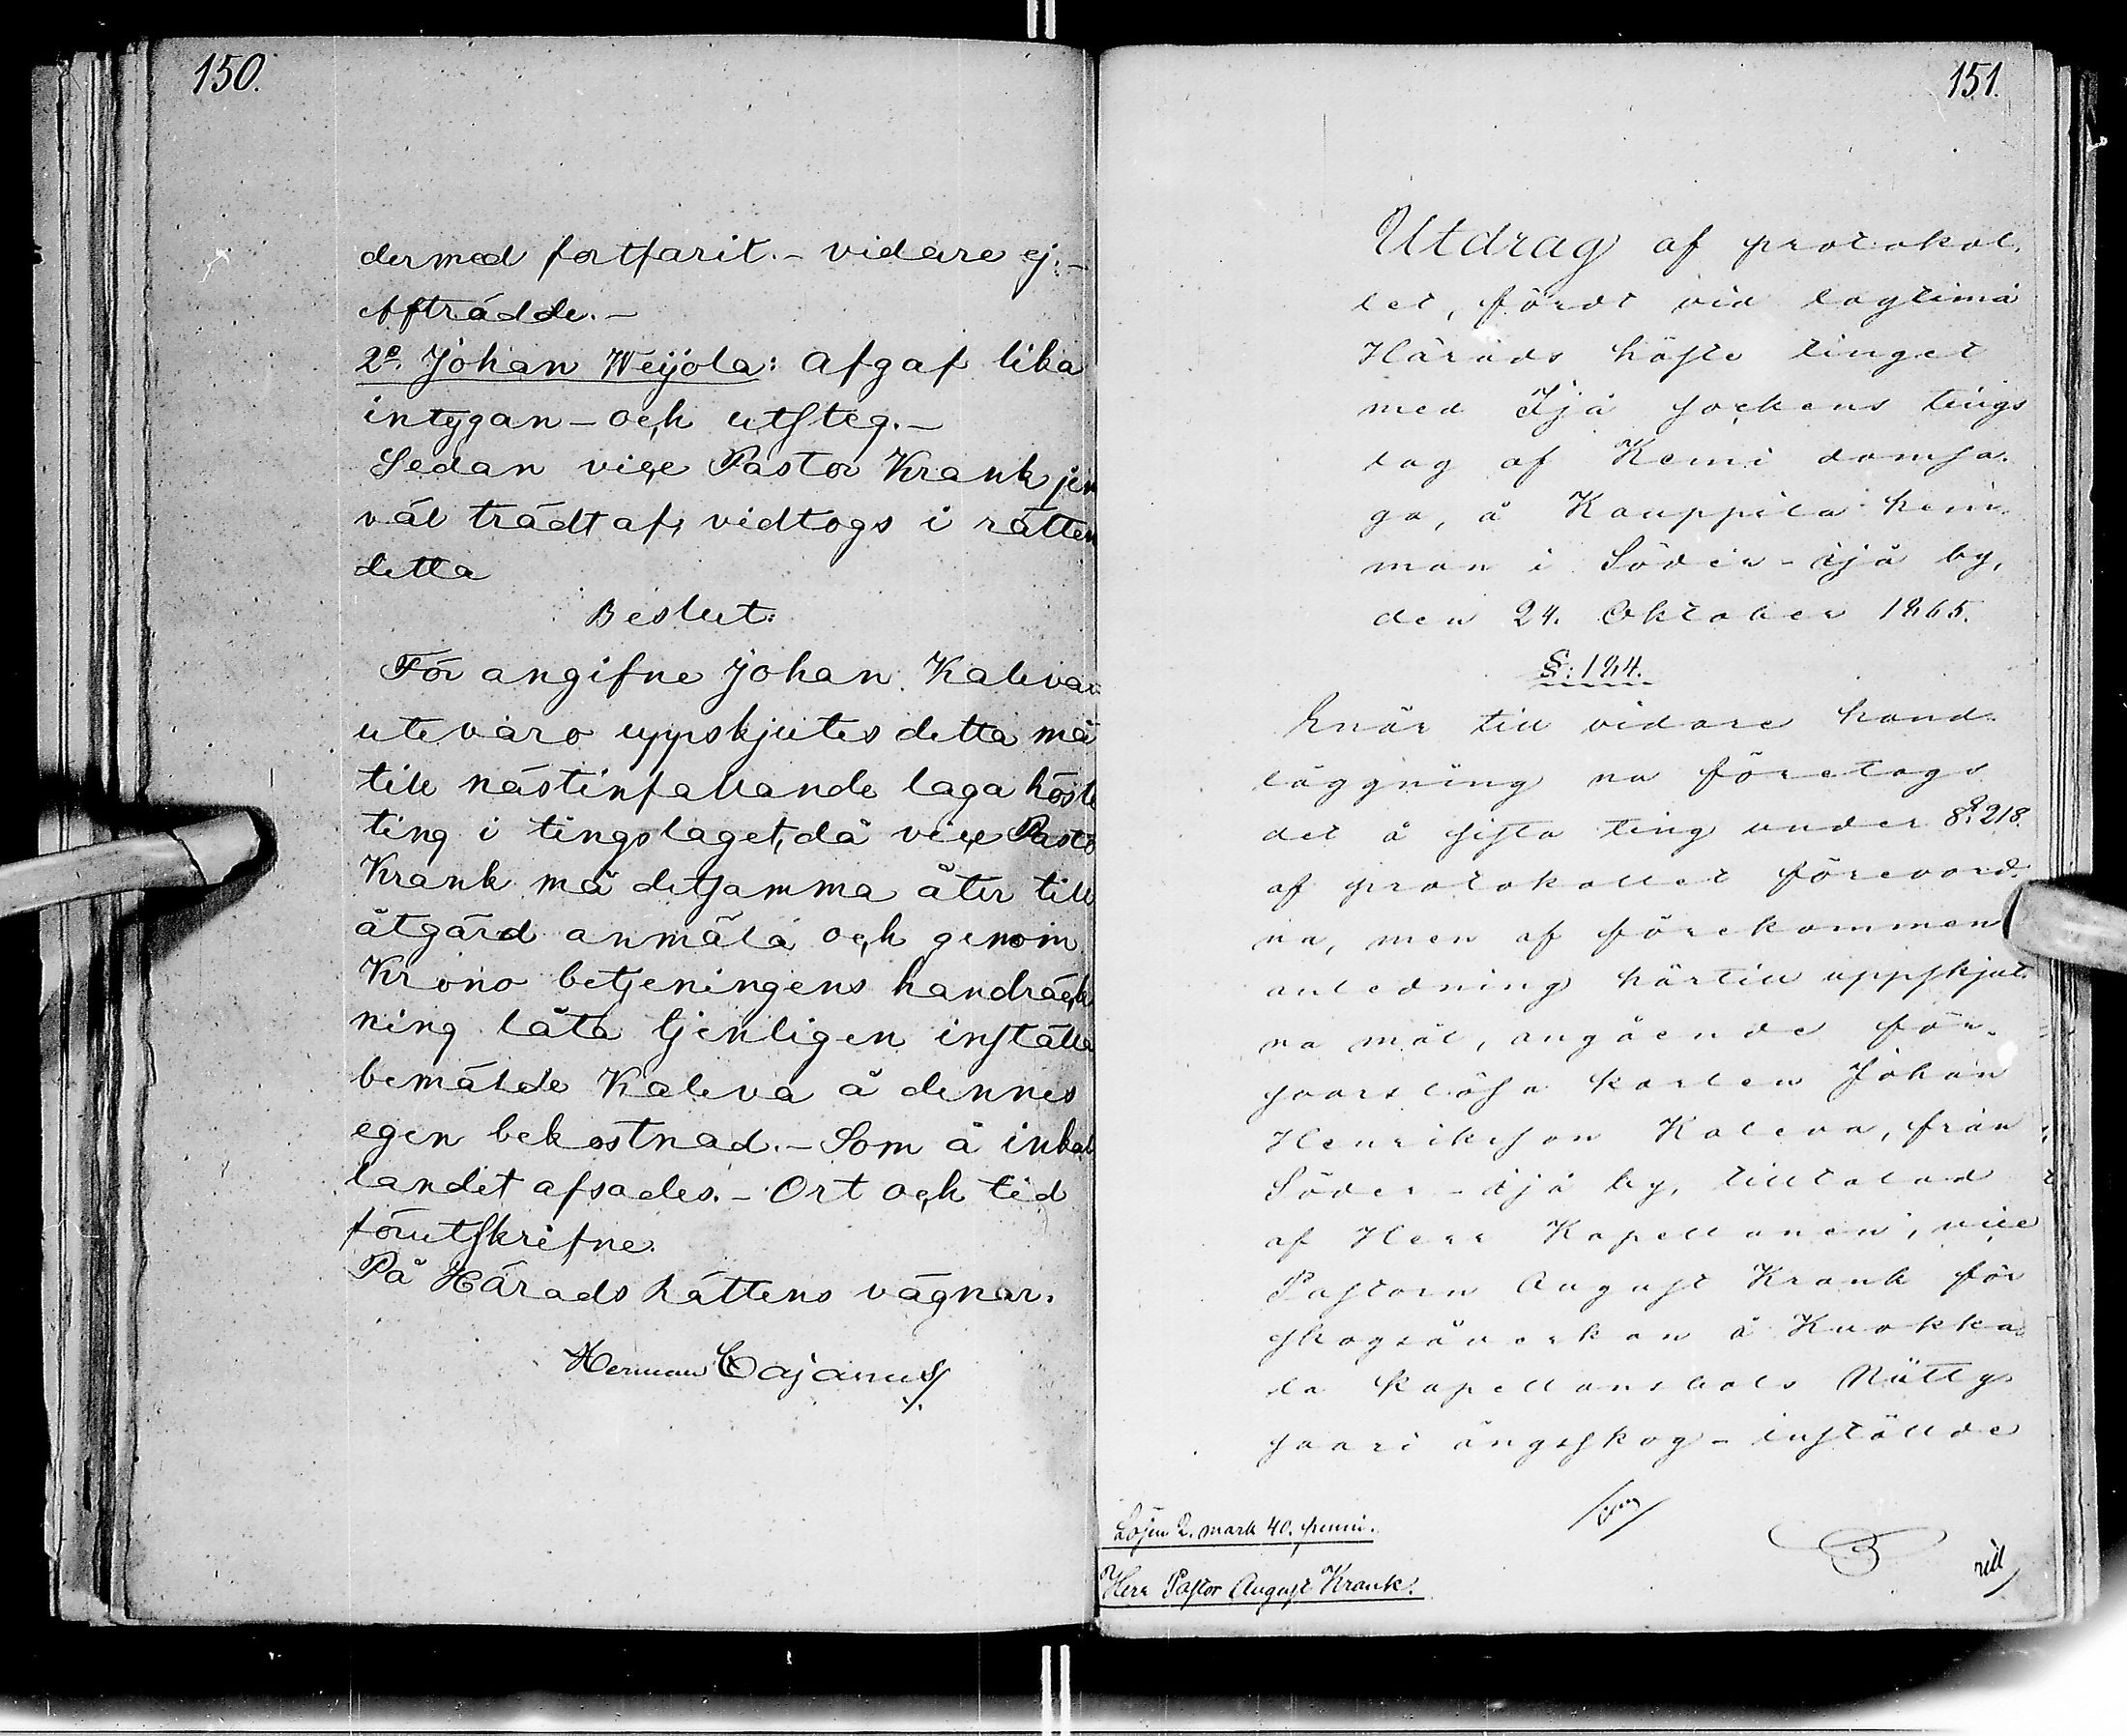 150.
dermed fortfarit. - vidare ej. -
Afträdde. -
2o. Johan Weijola: afgaf lika
intygan - och utsteg. -
Sedan vice Pastor Krank jem
väl trädt af, vidtogs i rätten
detta
Beslut:
För angifne Johan Kalevas
utevaro uppskjutes detta må
till nästinfallande laga höste
ting i tingslaget, då vice Pasto
Krank må detsamma åter till
åtgärd anmäla och genom
Krono betjeningens handräck
ning låta ljenligen inställa
bemälde Kaleva å dennes
egen bekostnad. - Som å inkal
landet afsades. - Ort och tid
förutskrifne.
På Härads Rättens vägnar.
Herman Cajanus
151.
Utdrag af protokol.
let, fördt vid lagtima
Härads höste tinget
med Ijå sockens tings
lag af Kemi domsa.
ga, å Kauppila hem.
man i Söder-Ijå by,
den 24. Oktober 1865.
§. 184.
Enär till vidare hand.
läggning nu företogs
det å sista ting under §. 218.
af protokollet förevord.
na, men af förekommen
anledning härtill uppskjut.
na mål, angående för.
svarslösa karlen Johan
Henriksson Kaleva, från
Söder-Ijå by, tilltalad
af Herr Kapellanen, vice
Pastorn August Krank för
skogsåverkan å Kuokka.
la kapellansbols Nätty.
saari ängsskog - inställde
Lösen 2. mark 40. penni.
Herr Pastor August Krank.
till